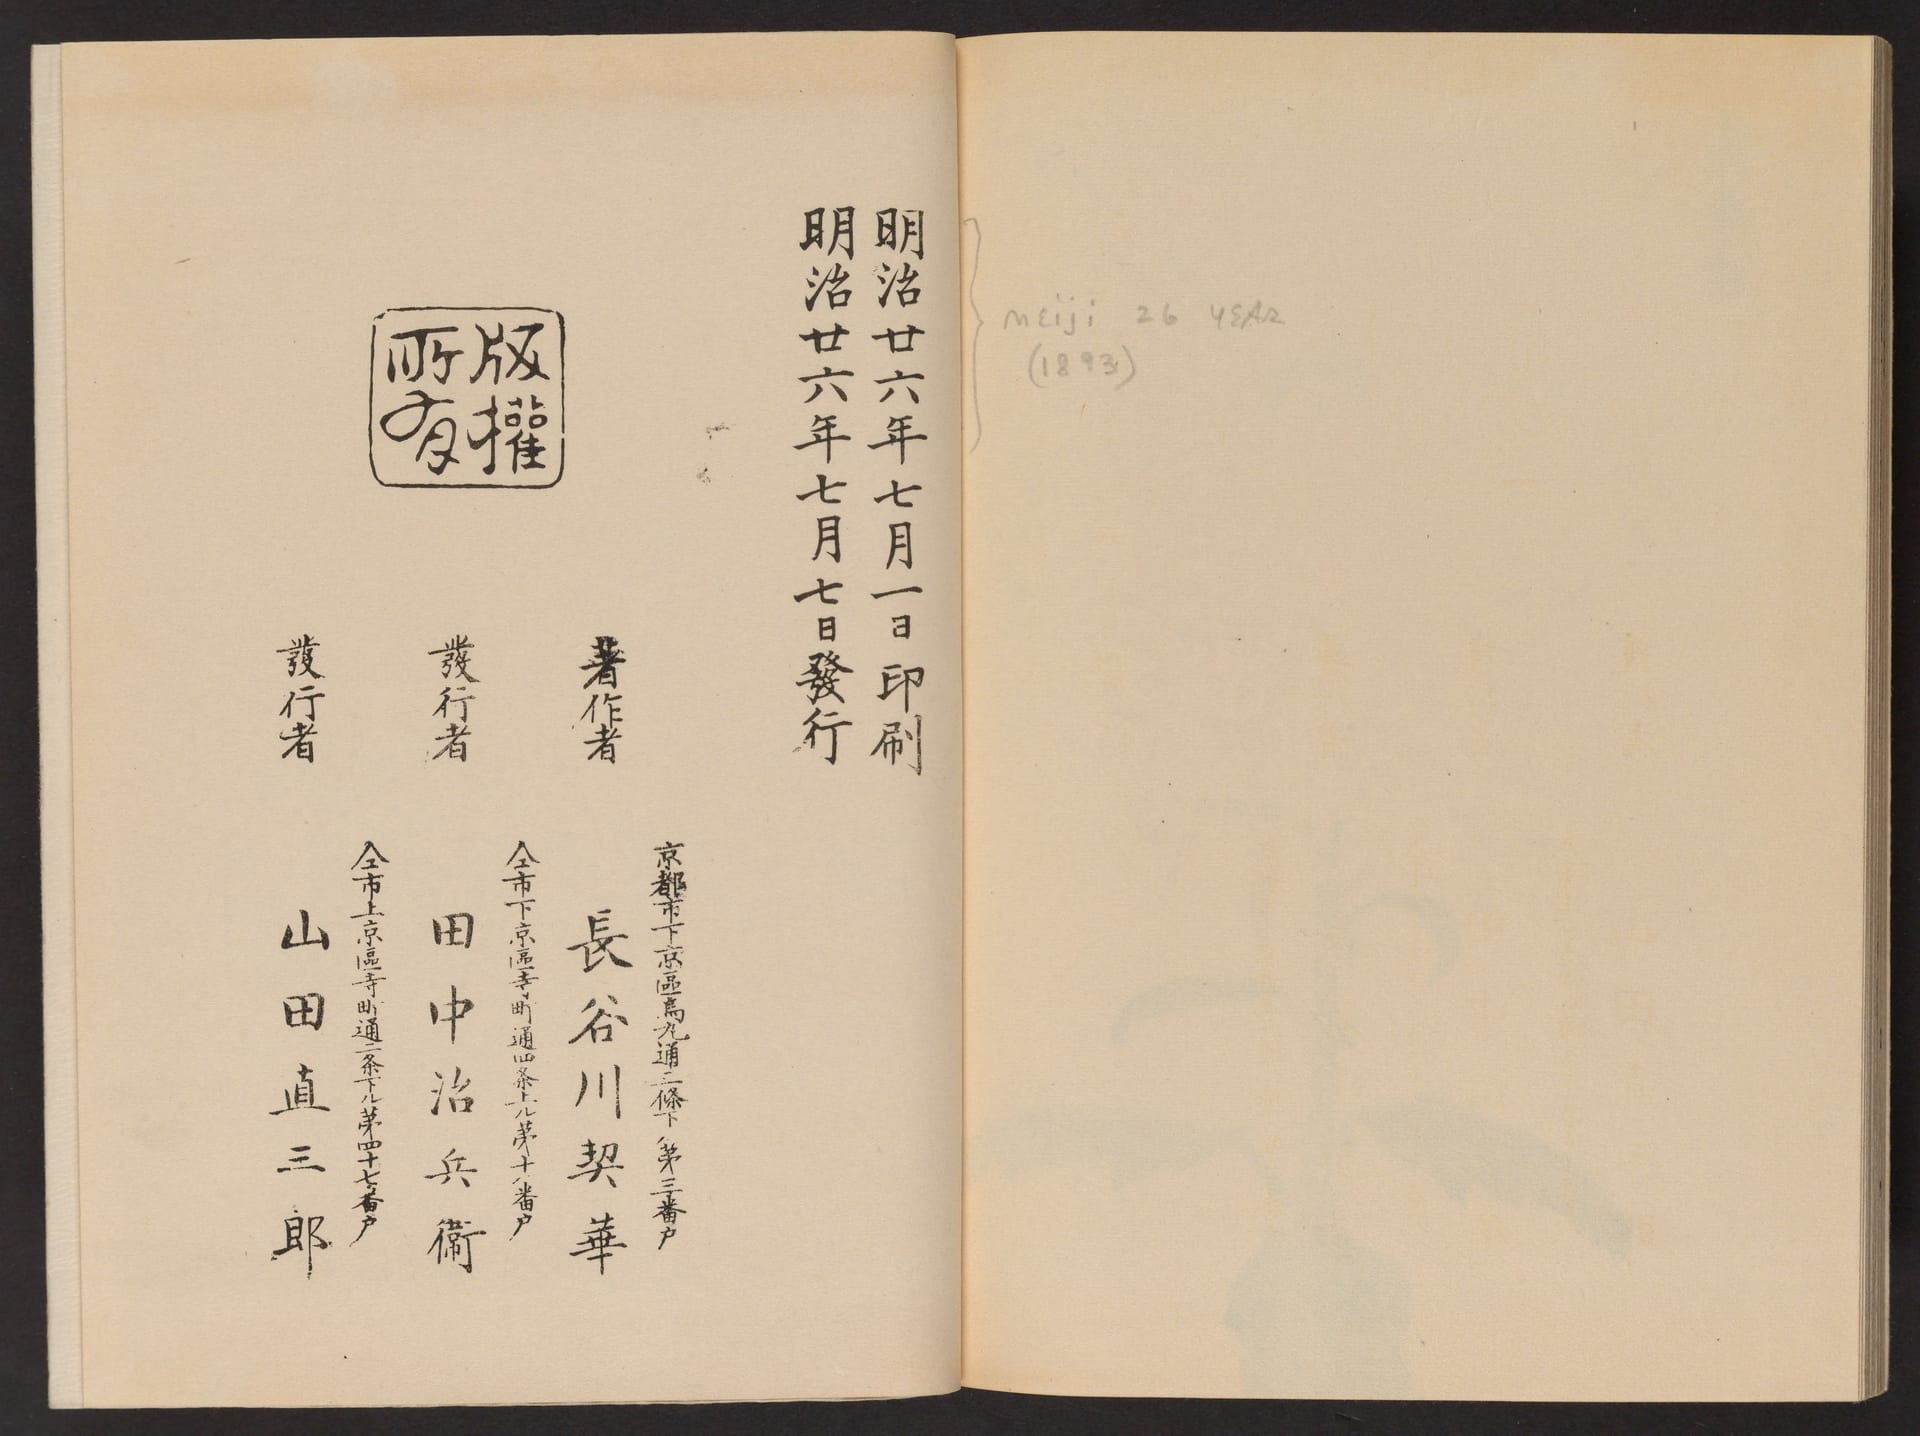 meiji 26 YEAR
(1893)
明治廿六年七月一日印刷
明治廿六年七月七日發行
版權
所有
京都市下京區烏丸通二條下ル第三番戸
著作者 長谷川契華
仝市下京區寺町通四条上ル第十八番戸
發行者 田中治兵衛
仝市上京區寺町通二条下ル第四十七番戸
發行者 山田直三郎